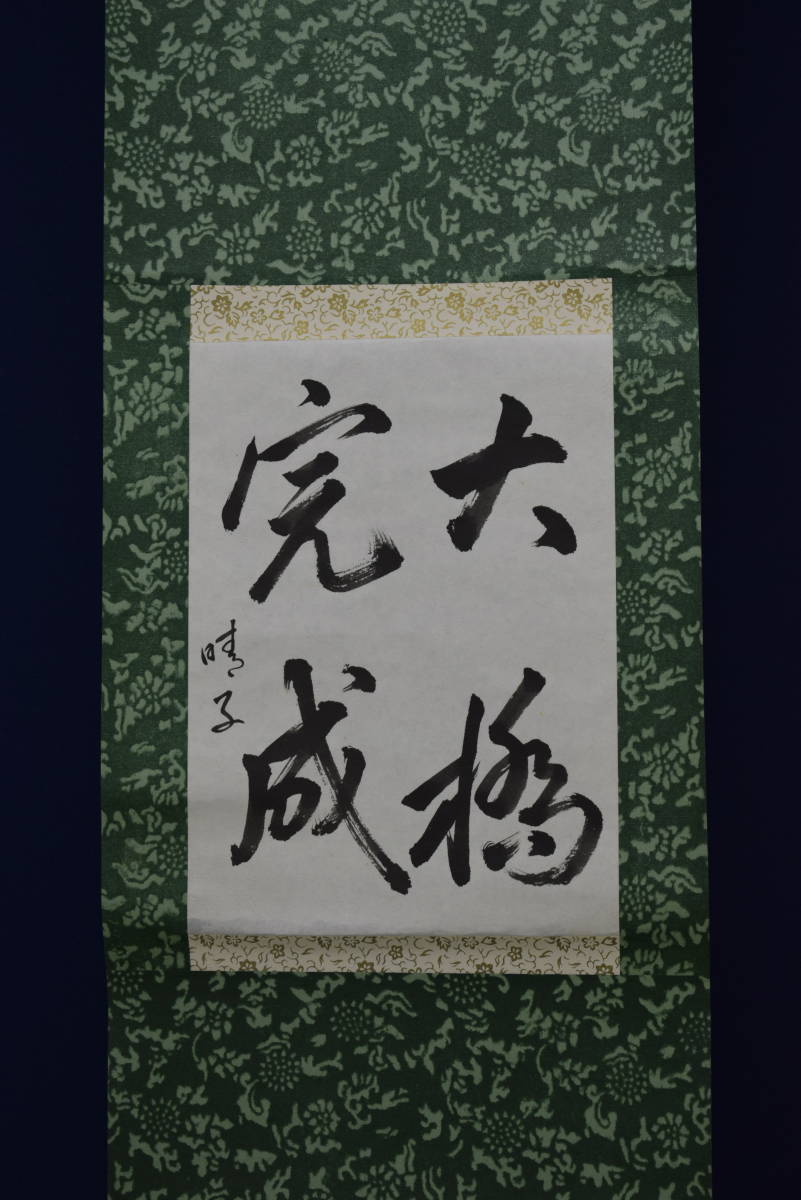 大橋
完成
晴子